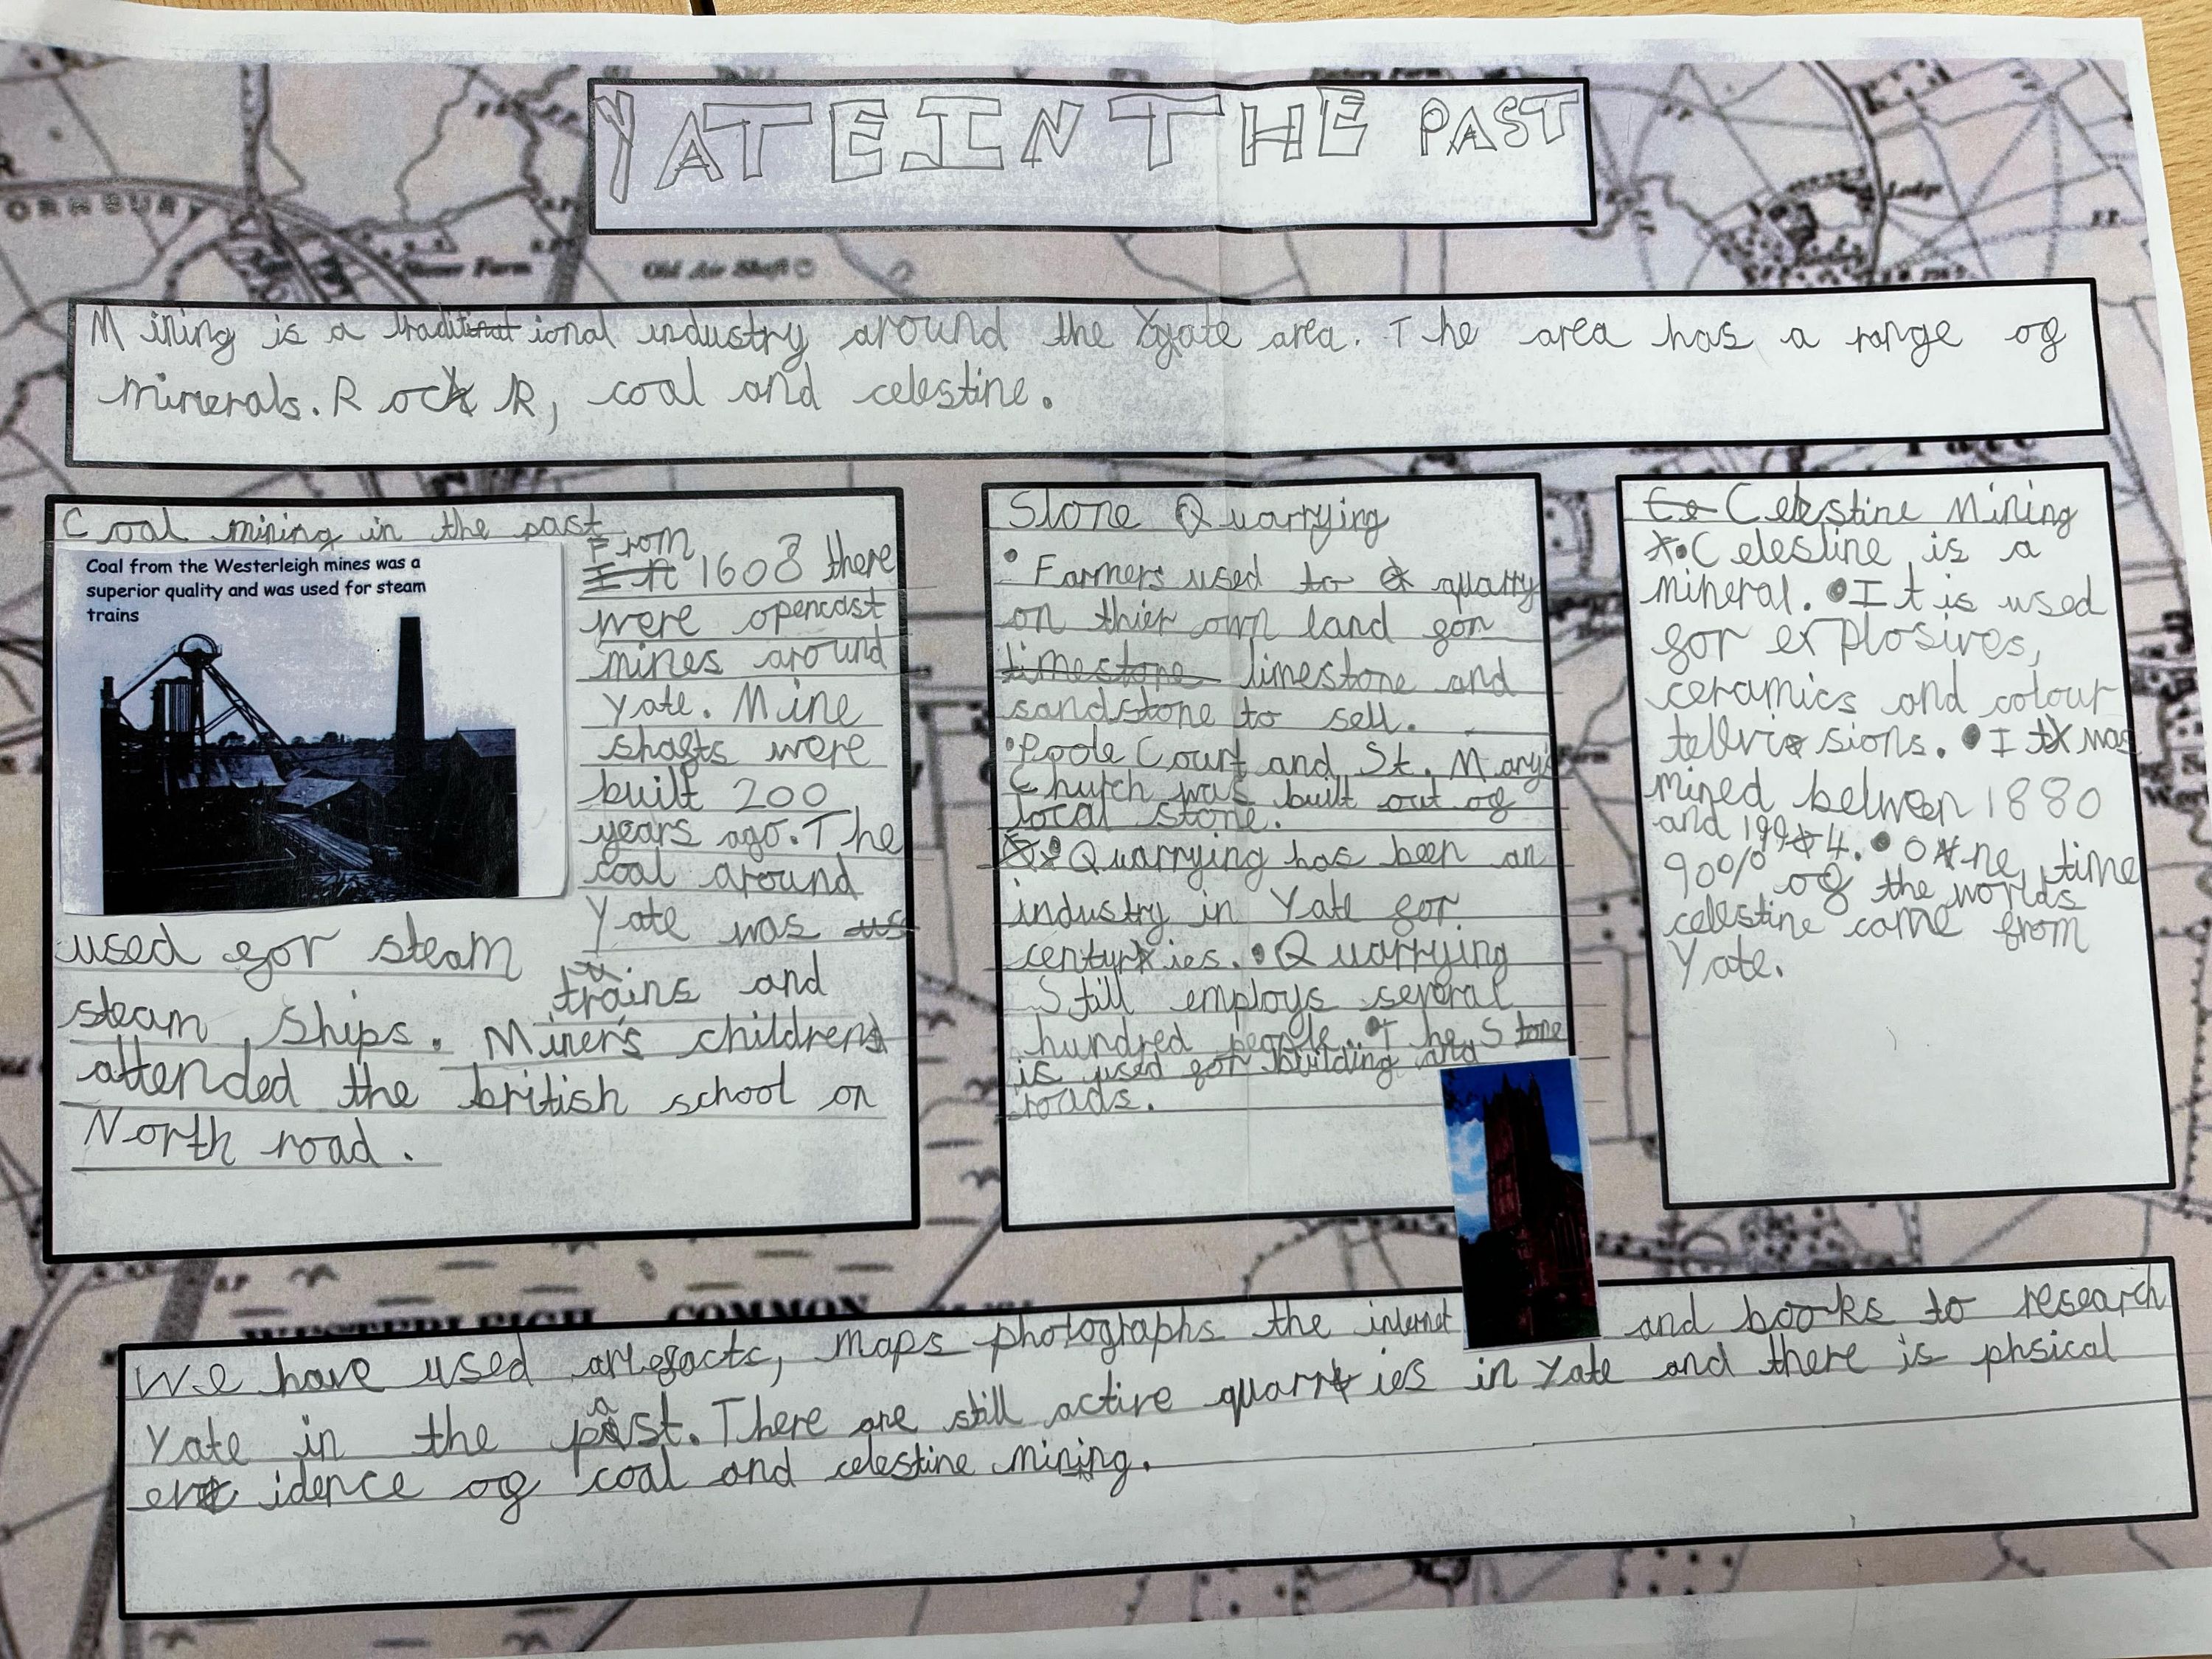 YATE IN THE PAST
Mining is a traditional industry around the Yate area. The area has a range of
minerals. Rock, coal and celestine.
Coal mining in the past
Coal from the Westerleigh mines was a
superior quality and was used for steam
trains
From
1608 there
were opencast
mines around
Yate. Mine
shafts were
built 200
years ago. The
coal around
Yate was
used for steam
trains and
steam ships. Miner's children
attended the british school on
North road.
Stone Quarrying
• Farmers used to quarry
on thier own land for
limestone and
sandstone to sell.
• Poole Court and St. Mary's
Church was built out of
local stone.
• Quarrying has been an
industry in Yate for
centuries. • Quarrying
Still employs several
hundred people. • The Stone
is used for building and
roads.
Celestine Mining
• Celestine is a
mineral. • It is used
for explosives,
ceramics and colour
tellvisions. • It was
mined between 1880
and 1994. • One time
90% of the worlds
celestine came from
Yate.
We have used artefacts, maps photographs the internet and books to research
Yate in the past. There are still active quarries in Yate and there is phsical
evidence of coal and celestine mining.
Old Air Shaft
WESTERLEIGH COMMON
Lodge
F.P.